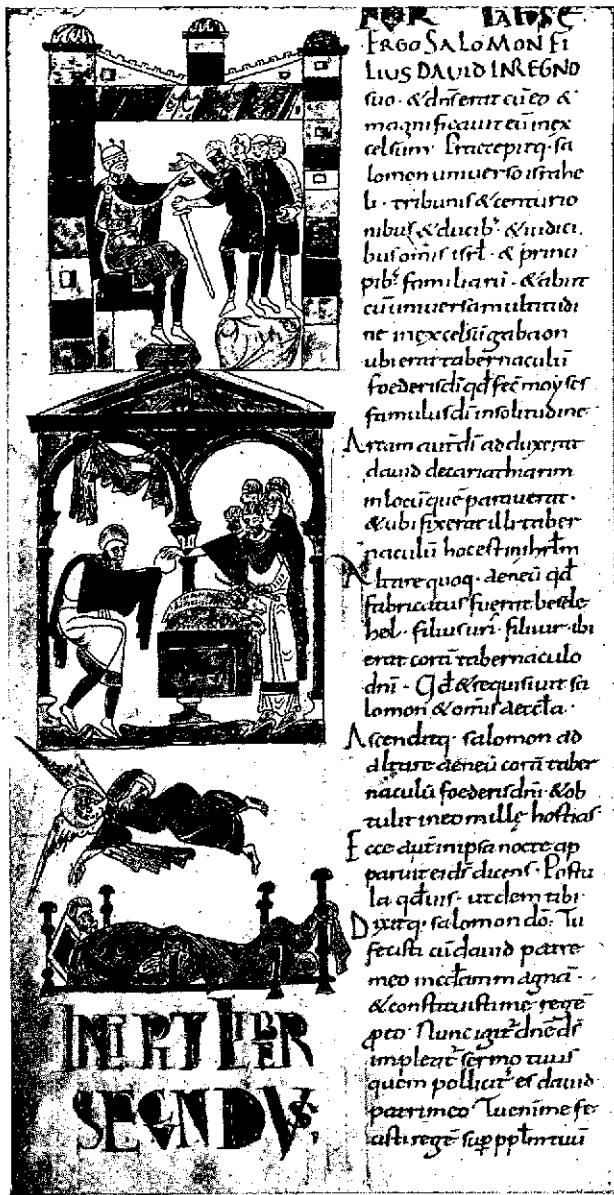 ERGO SALOMON FI
LIUS DAVID IN REGNO
suo · & dn̄s erat cū eo &
magnificavit eū in ex
celsum · Praecepitq; sa
lomon universo israhe
li · tribunis & centurio
nibus & ducib; & iudici
bus omīs isrl̄ · & princi
pib; familiarū · & abiit
cū universa multitudi
ne in excelsū gabaon
ubi erat tabernaculū
foederis dī qd̄ fec̄ moyses
famulus dī in solitudine
Arcam aut̄ dī adduxerat
david de cariathiarim
in locū quē paraverat ·
& ubi fixerat illi taber
naculū hoc est in hrl̄m
Altare quoq; aeneū qd̄
fabricatus fuerat besele
hel · filius uri · filii ur · ibi
erat corā tabernaculo
dnī · Qd̄ & requisivit sa
lomon & omīs aeccl̄a ·
Ascenditq; salomon ad
altare aeneū corā taber
naculū foederis dnī · & ob
tulit in eo mille hostias
Ecce aut̄ in ipsa nocte ap
paruit ei dī dicens · Postu
la qd̄ vis · ut dem tibi ·
Dixitq; salomon dō · Tu
fecisti cū david patre
meo mīcdiam magnā ·
& constituisti me regē
p eo · Nunc igit̄ dnē dī
impleat̄ sermo tuus
quem pollicit̄ es david
patri meo · Tu enim me fe
cisti regē sup̄ ppl̄m tuū
INCIPIT LIBER
SECUNDVS;